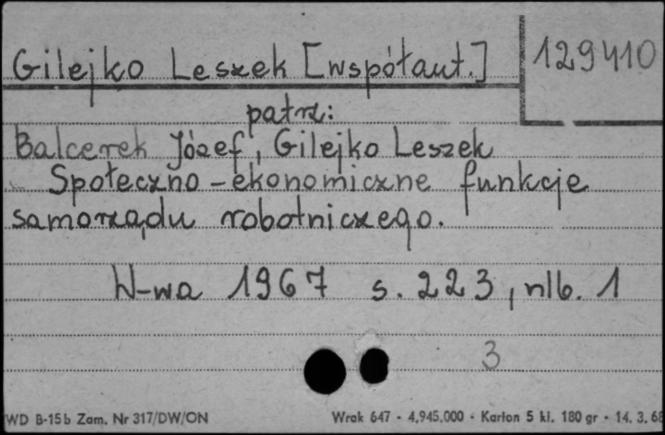 Gilejko Leszek [współaut.] 129410
patrz:
Balcerek Józef, Gilejko Leszek
Społeczno-ekonomiczne funkcje
samorządu robotniczego.
W-wa 1967 s. 223, nlb. 1
3
WD B-15b Zam. Nr 317/DW/ON Wrak 647 - 4,945.000 - Karton 5 kl. 180 gr - 14. 3. 68